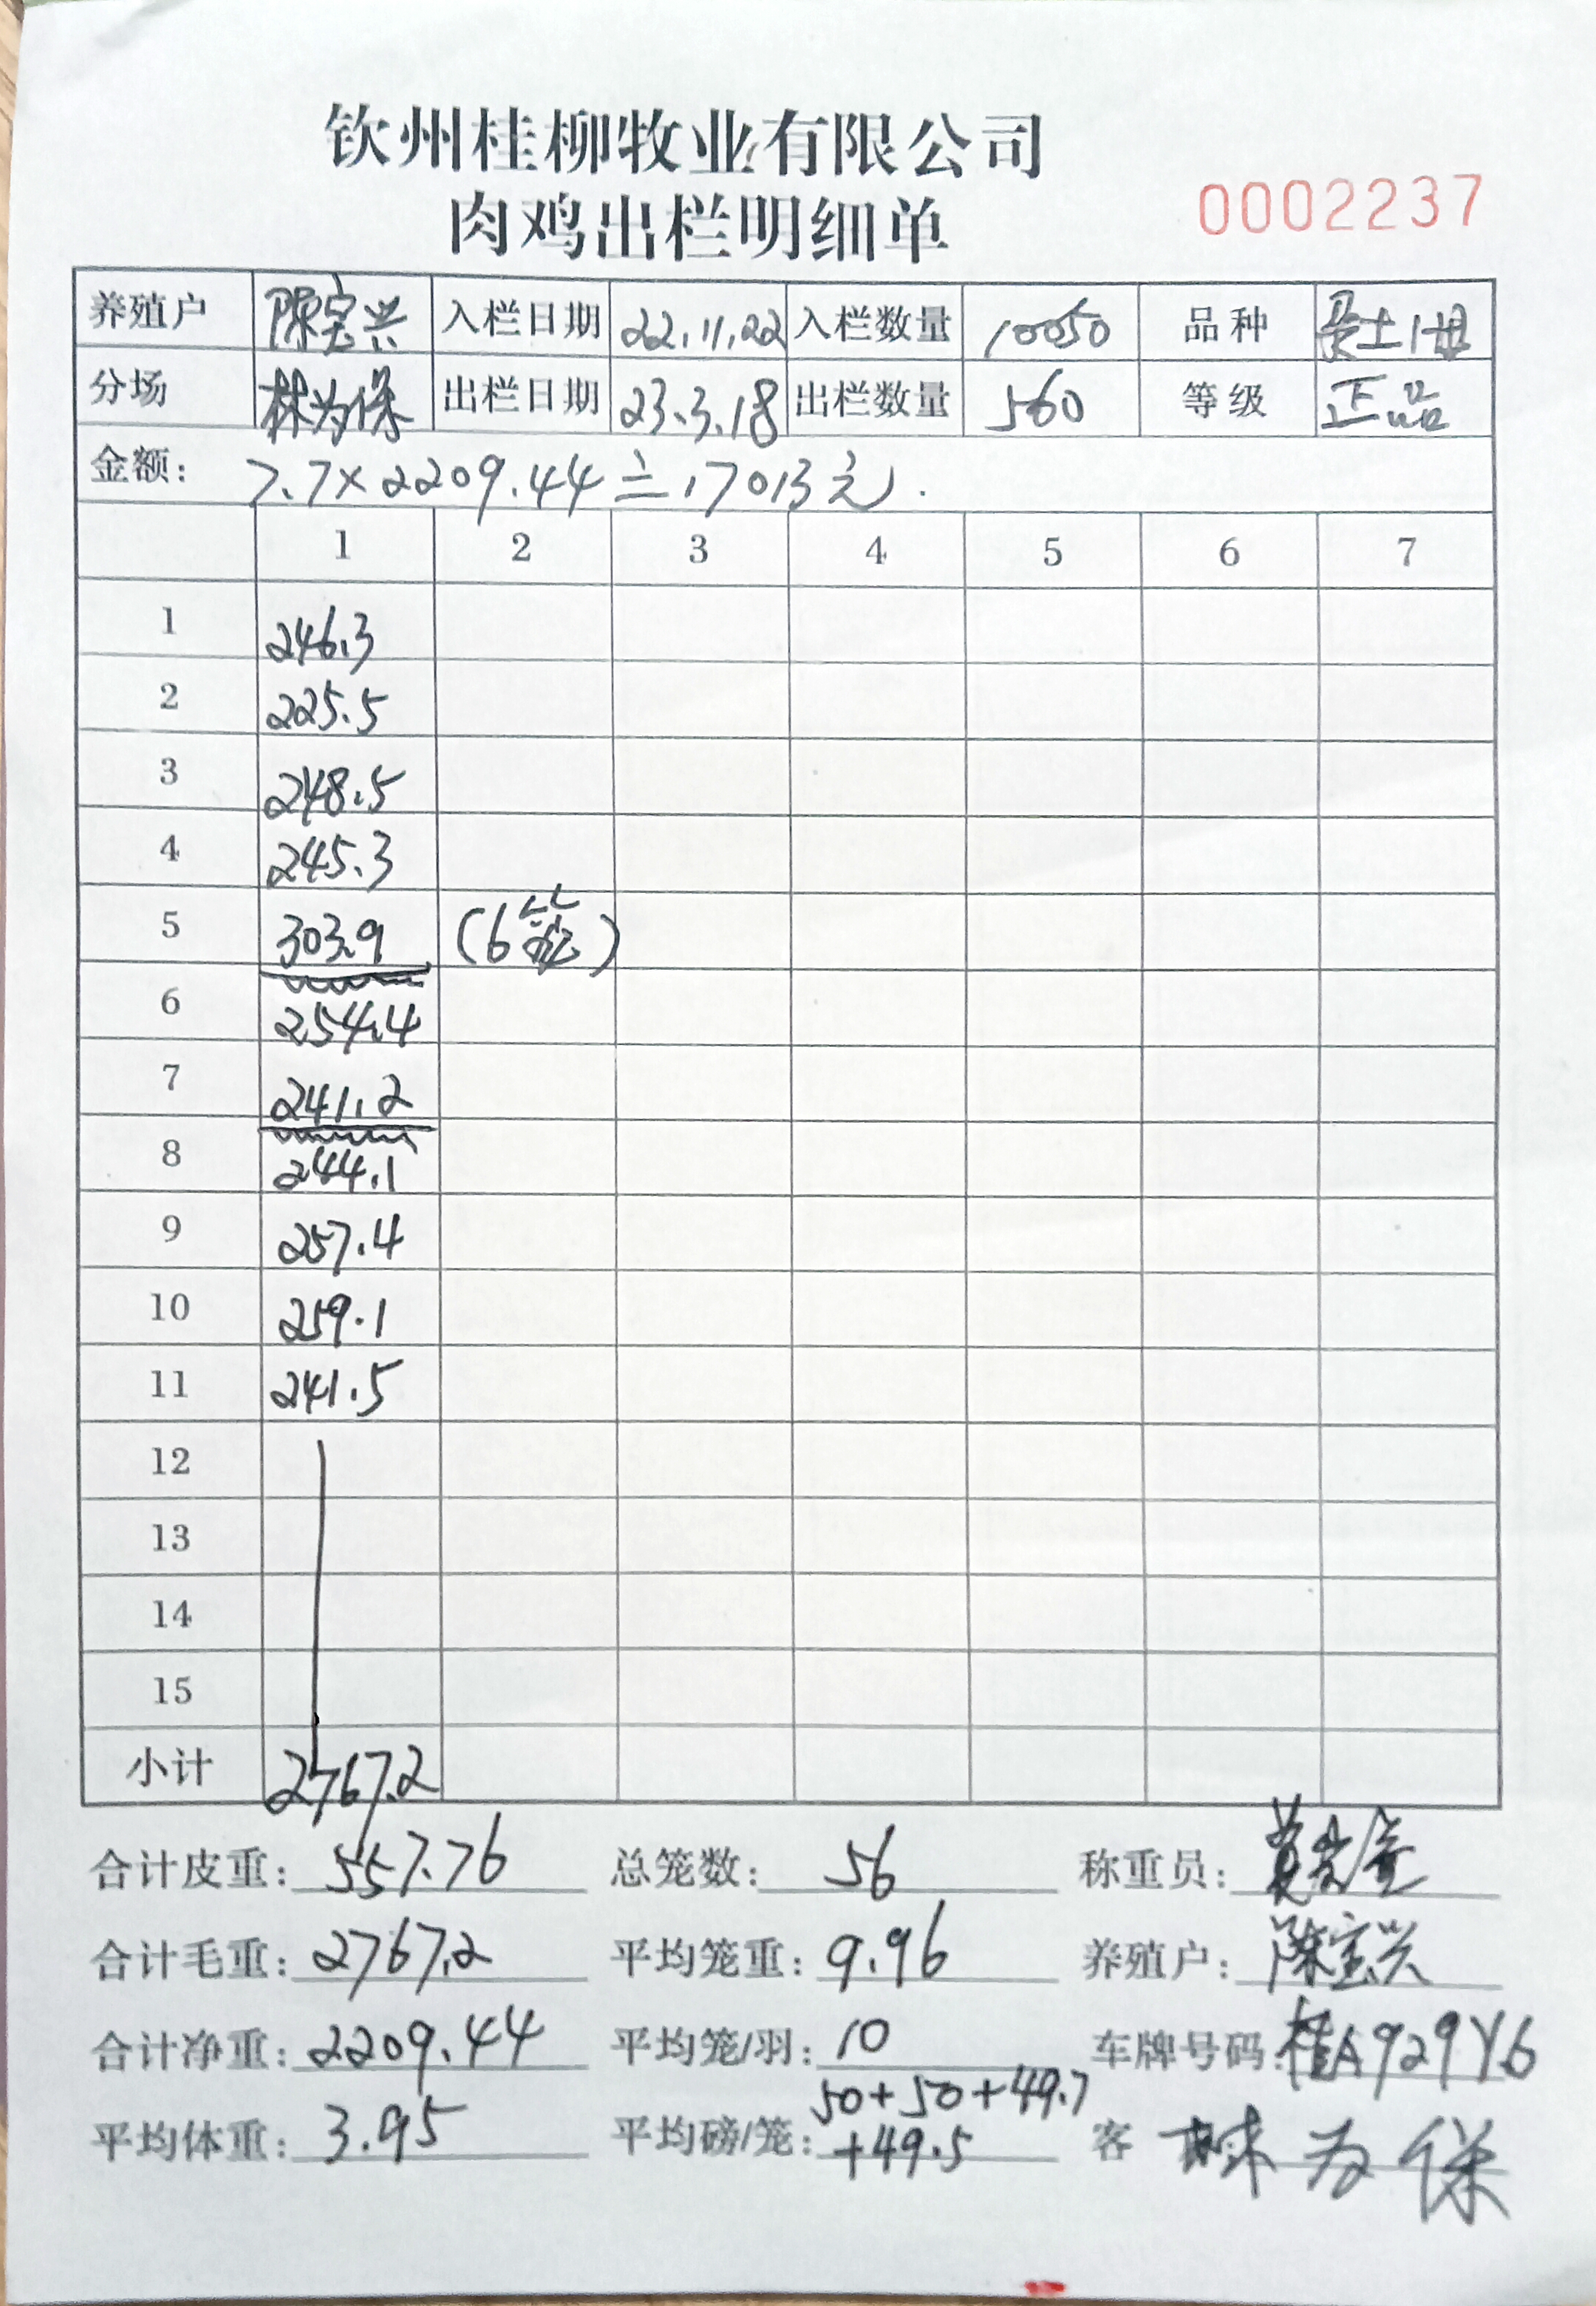 钦州桂柳牧业有限公司
肉鸡出栏明细单
0002237
养殖户 陈宝兴 入栏日期 22.11.22 入栏数量 10050 品种 土1母
分场 林为保 出栏日期 23.3.18 出栏数量 560 等级 正品
金额: 7.7×2209.44≐17013元.
1 2 3 4 5 6 7
1 246.3
2 225.5
3 248.5
4 245.3
5 303.9 (6笼)
6 254.4
7 241.2
8 244.1
9 257.4
10 259.1
11 241.5
12
13
14
15
小计 2767.2
合计皮重: 557.76 总笼数: 56 称重员: 黄
合计毛重: 2767.2 平均笼重: 9.96 养殖户: 陈宝兴
合计净重: 2209.44 平均笼/羽: 10 车牌号码: 桂A929Y6
平均体重: 3.95 平均磅/笼: 50+50+49.7+49.5 客 林为保